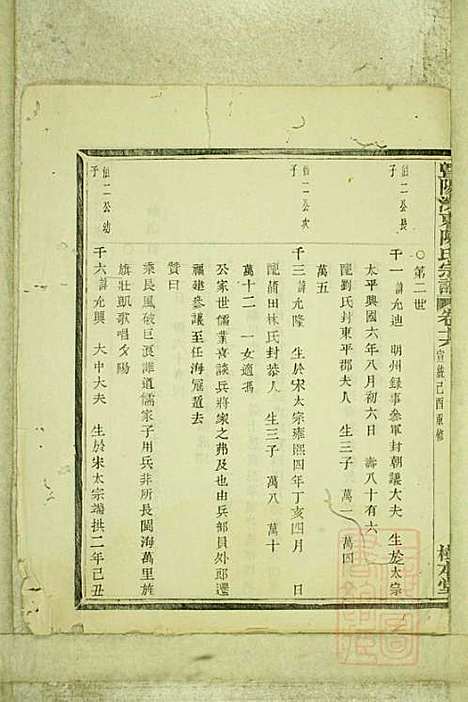 暨陽 東陳氏宗譜 卷 宣統己酉重修
○第二世
仙二公長子
千一 諱允迪 明州錄事參軍封朝議大夫 生於太宗
太平興國六年八月初六日 壽八十有六
配劉氏封東平郡夫人 生三子 萬一 萬四
萬五
仙二公次子
千三 諱允隆 生於宋太宗雍熙四年丁亥四月 日
配莆田林氏封恭人 生三子 萬八 萬十
萬十二 一女適馮
公家世儒業喜談兵將家之弗及也由兵部員外郎遷
福建參議至任海寇遁去
贊曰
乘長風破巨浪誰道儒家子用兵非所長閩海萬里旌
旗壯凱歌唱夕陽
仙二公幼子
千六 諱允興 大中大夫 生於宋太宗端拱二年己丑